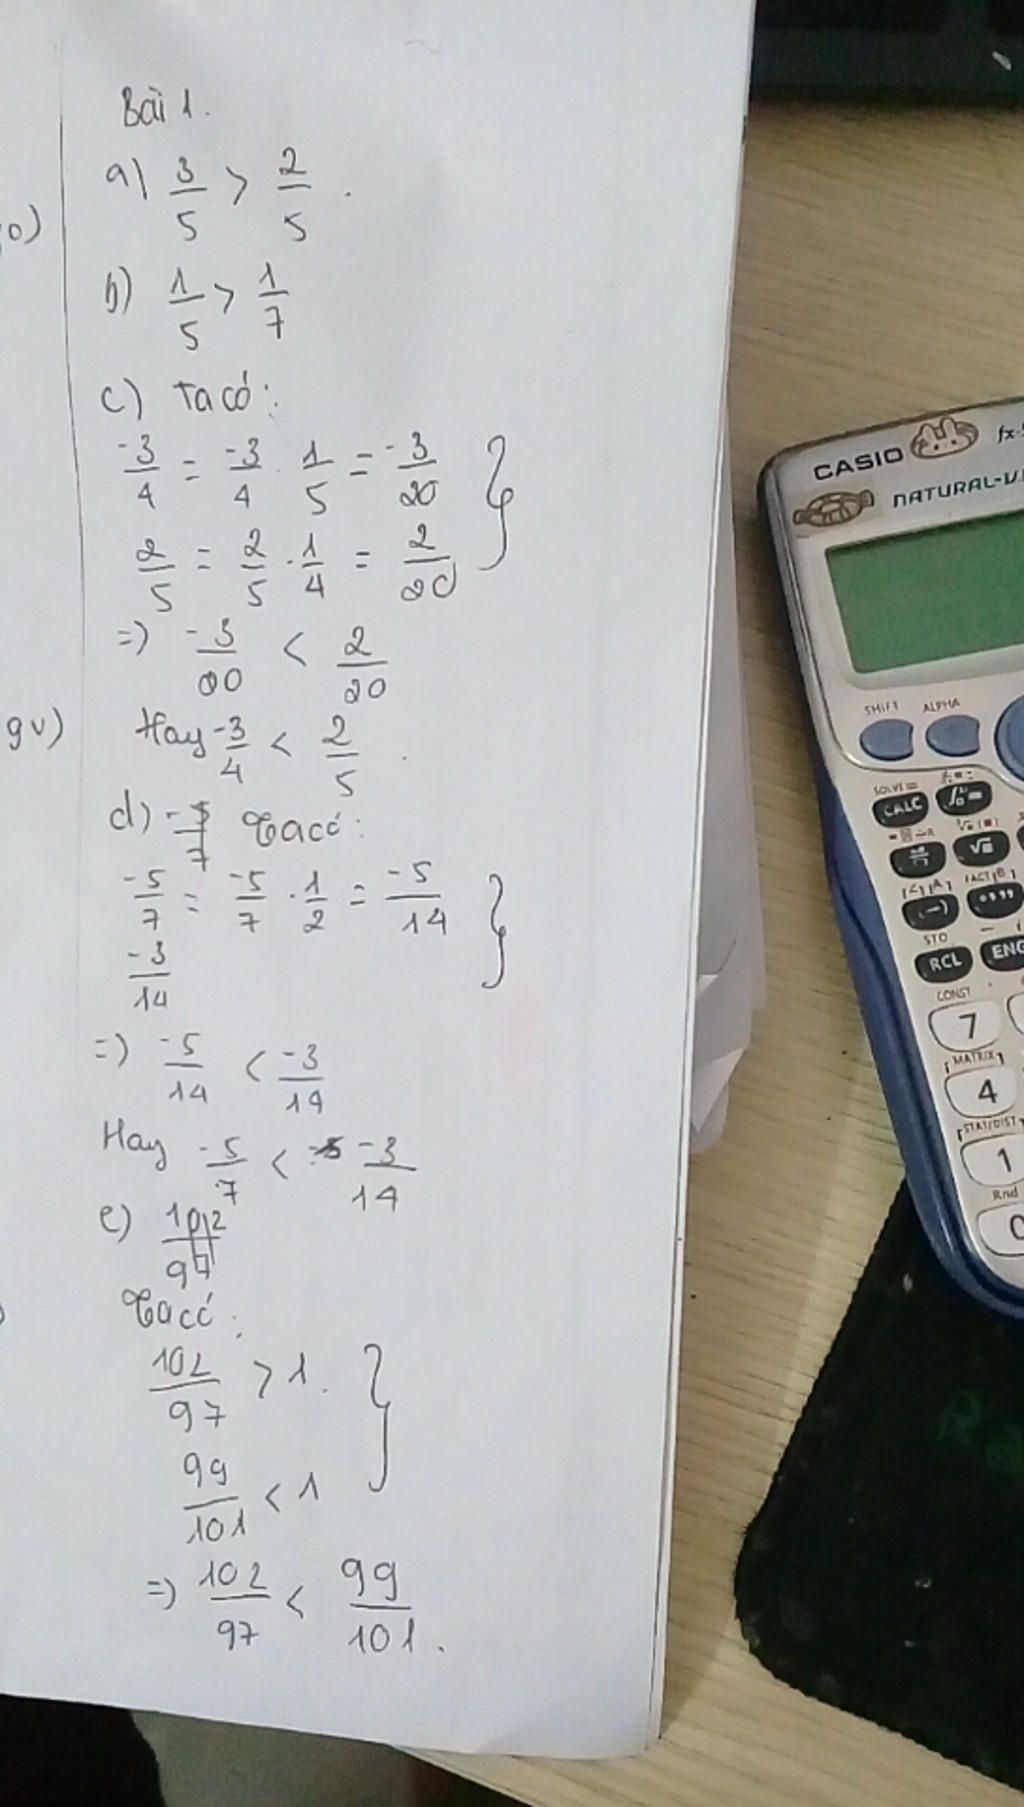 Bài 1.
a) 3/5 > 2/5.
b) 1/5 > 1/7
c) Ta có:
-3/4 = -3/4 . 1/5 = -3/20 }
2/5 = 2/5 . 1/4 = 2/20
=) -3/20 < 2/20
gv)
Hay -3/4 < 2/5.
d) Ta có:
-5/7 = -5/7 . 1/2 = -5/14 }
-3/14
=) -5/14 < -3/14
Hay -5/7 < -3/14
e) 102/97
Ta có:
102/97 > 1. }
99/101 < 1
=) 102/97 < 99/101.
CASIO
NATURAL-V.
SHIFT ALPHA
SOLVE =
CALC
STO
RCL ENG
CONST
7
MATRIX
4
STAT/DIST
1
Rnd
0